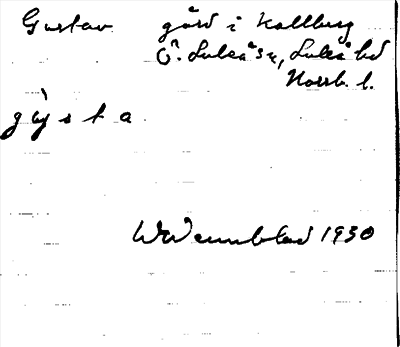 Gustav gård i Kallberg
Ö. Luleå sn, Luleå hd
Norrb. l.
gùsta
W Wennblad 1930